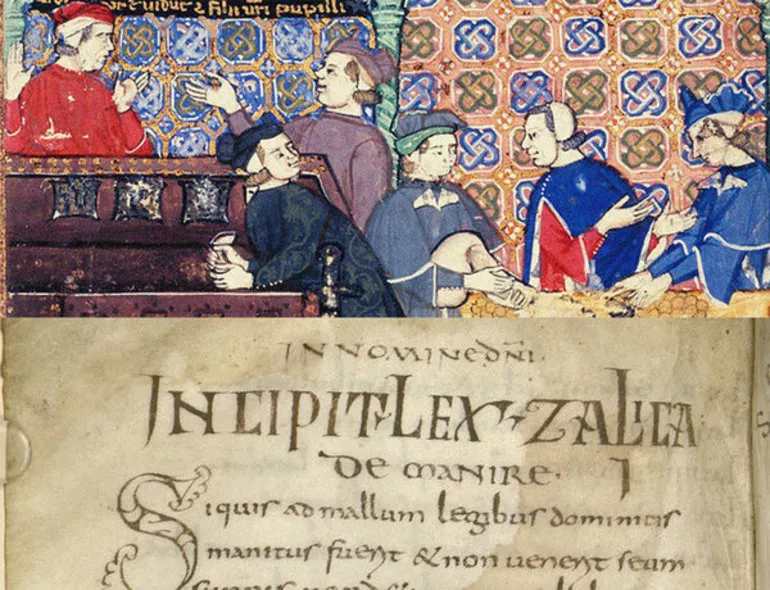 vidue & filii uri pupilli
IN NOMINE DN̄I.
INCIPIT LEX ZALICA
DE MANIRE. I
Siquis ad mallum legibus dominicis
manitus fuerit & non uenerit seum